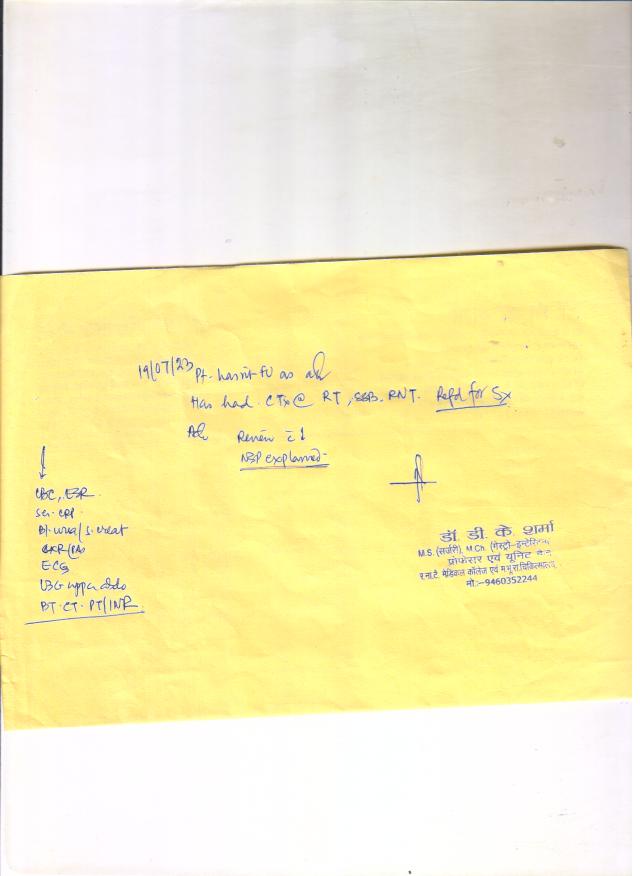 19/07/23 Pt. hasn't FU as adv
Has had CTx @ RT, SSB, RNT. Refd for Sx
Adv Review c̄
NBP explained
CBC, ESR
Ser. CRP
Bl. urea/S. creat
CXR (PA)
ECG
USG upper abdo
BT. CT. PT/INR
डॉ. डी. के. शर्मा
M.S. (सर्जरी), M.Ch. (गेस्ट्रो-इन्टेस्टिनल
प्रोफेसर एवं यूनिट हेड
र.ना.टै. मेडिकल कॉलेज एवं म.भू.रा.चिकित्सालय,
मो.:–9460352244